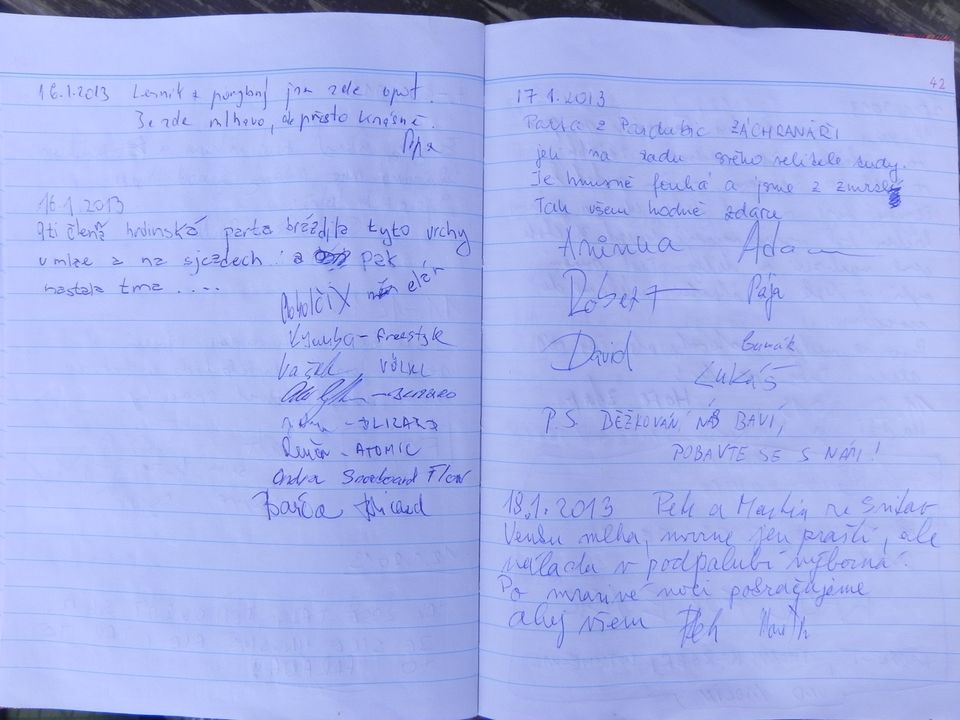 16.1.2013 jsm zde opět.
Je zde mlhavo, ale přesto krásně.
Pepa
16.1.2013
9ti člená hrdinská parta brázdila tyto vrchy
v mlze a na sjezdech a pak
nastala tma ....
elán
– Freestyle
Vašek VÖLKL
– BLIZARD
Renča – ATOMIC
Ondra Snowboard Flow
Barča Blizard
42
17.1.2013
Parta z Pardubic ZÁCHRANÁŘI
jeli na radu svého velitele sudy.
Je hnusně fouká a jsme z zmrzlí
Tak všem hodně zdaru
Aninka Adam
Robert Pája
David
Lukáš
P.S. BĚŽKOVÁNÍ NÁS BAVÍ,
POBAVTE SE S NÁMI!
18.1.2013 Petr a Martin ze Svitav
Venku mlha, mrazne jen praští, ale
nálada v podpalubí výborná!
Po mrazivé noci pokračujeme
ahoj všem Petr